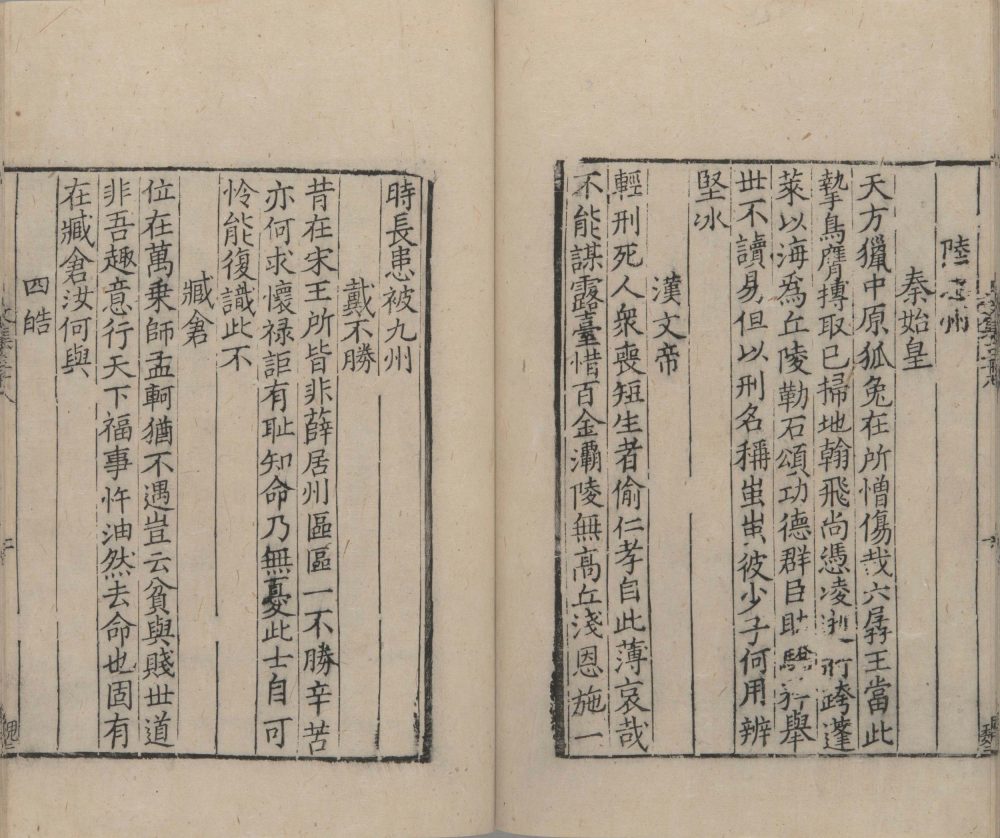 陸
州
秦始皇
天方獵中原狐兔在所憎傷哉六孱王當此
摯鳥膺摶取已掃地翰飛尚憑凌 跨蓬
萊以海為丘陵勒石頌功德群臣助驕矜舉
世不讀易但以刑名稱蚩蚩彼少子何用辨
堅冰
漢文帝
輕刑死人衆喪短生者偷仁孝自此薄哀哉
不能謀露臺惜百金灞陵無高丘淺恩施一
時長患被九州
戴不勝
昔在宋王所皆非薛居州區區一不勝辛苦
亦何求懷禄詎有耻知命乃無憂此士自可
怜能復識此不
臧倉
位在萬乗師孟軻猶不遇豈云貧與賤世道
非吾趣意行天下福事忤油然去命也固有
在臧倉汝何與
四皓